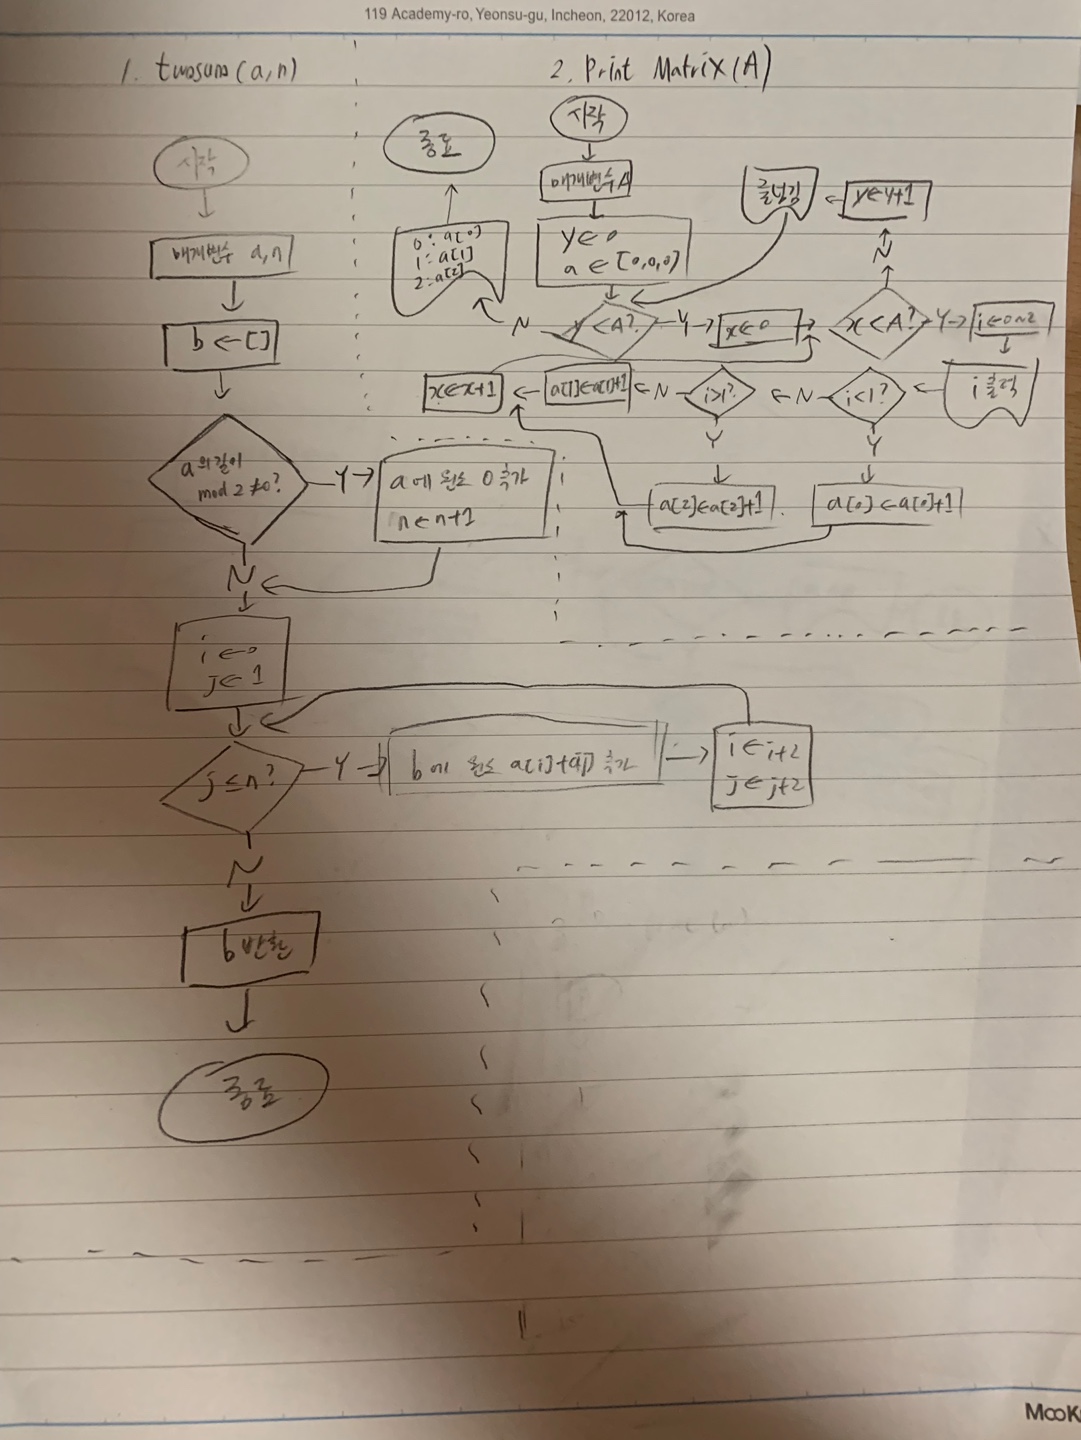 119 Academy-ro, Yeonsu-gu, Incheon, 22012, Korea
1. twosum(a,n)
시작
매개변수 a,n
b ← []
a의 길이
mod 2 ≠0?
Y
a에 원소 0 추가
n ← n+1
N
i ← 0
j ← 1
j ≤ n?
Y
b에 원소 a[i]+a[j] 추가
i ← i+2
j ← j+2
N
b 반환
종료
2. Print Matrix(A)
시작
매개변수 A
y ← 0
a ← [0,0,0]
y < A?
N
0 : a[0]
1 : a[1]
2 : a[2]
종료
Y
x ← 0
x < A?
N
y ← y+1
줄넘김
Y
i ← 0~2
i 출력
i<1?
Y
a[0] ← a[0]+1
N
i>1?
Y
a[2] ← a[2]+1
N
a[1] ← a[1]+1
x ← x+1
MooK